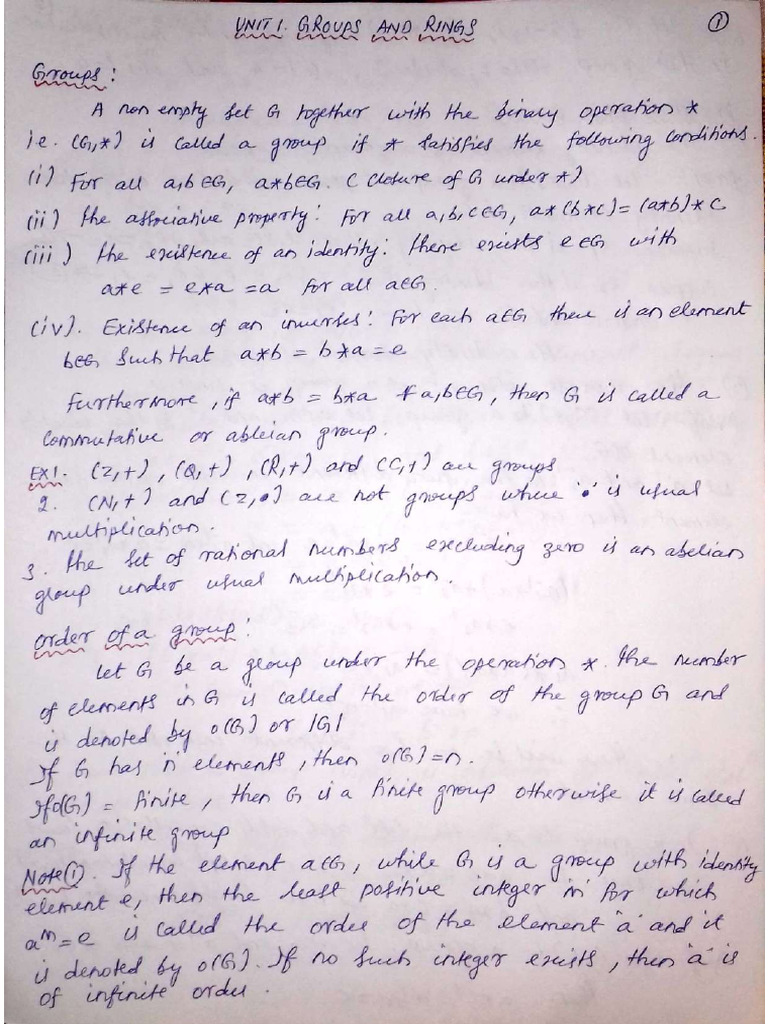 UNIT 1. GROUPS AND RINGS
①
Groups:
A non empty set G together with the binary operation *
i.e. (G,*) is called a group if * satisfies the following conditions.
(i) For all a,b∈G, a*b∈G. (closure of G under *)
(ii) the associative property: For all a,b,c∈G, a*(b*c)=(a*b)*c
(iii) the existence of an identity: there exists e∈G with
a*e = e*a = a for all a∈G.
(iv). Existence of an inverses: For each a∈G there is an element
b∈G such that a*b = b*a = e
Furthermore, if a*b = b*a ∀ a,b∈G, then G is called a
commutative or ableian group.
EX1. (Z,+), (Q,+), (R,+) and (C,+) are groups
2. (N,+) and (Z,•) are not groups where '•' is usual
multiplication.
3. the set of rational numbers excluding zero is an abelian
group under usual multiplication.
order of a group:
let G be a group under the operation *. the number
of elements in G is called the order of the group G and
is denoted by o(G) or |G|
If G has 'n' elements, then o(G)=n.
If o(G) = finite, then G is a finite group otherwise it is called
an infinite group
Note①. If the element a∈G, while G is a group with identity
element e, then the least positive integer 'm' for which
a^m = e is called the order of the element 'a' and it
is denoted by o(G). If no such integer exists, then 'a' is
of infinite order.